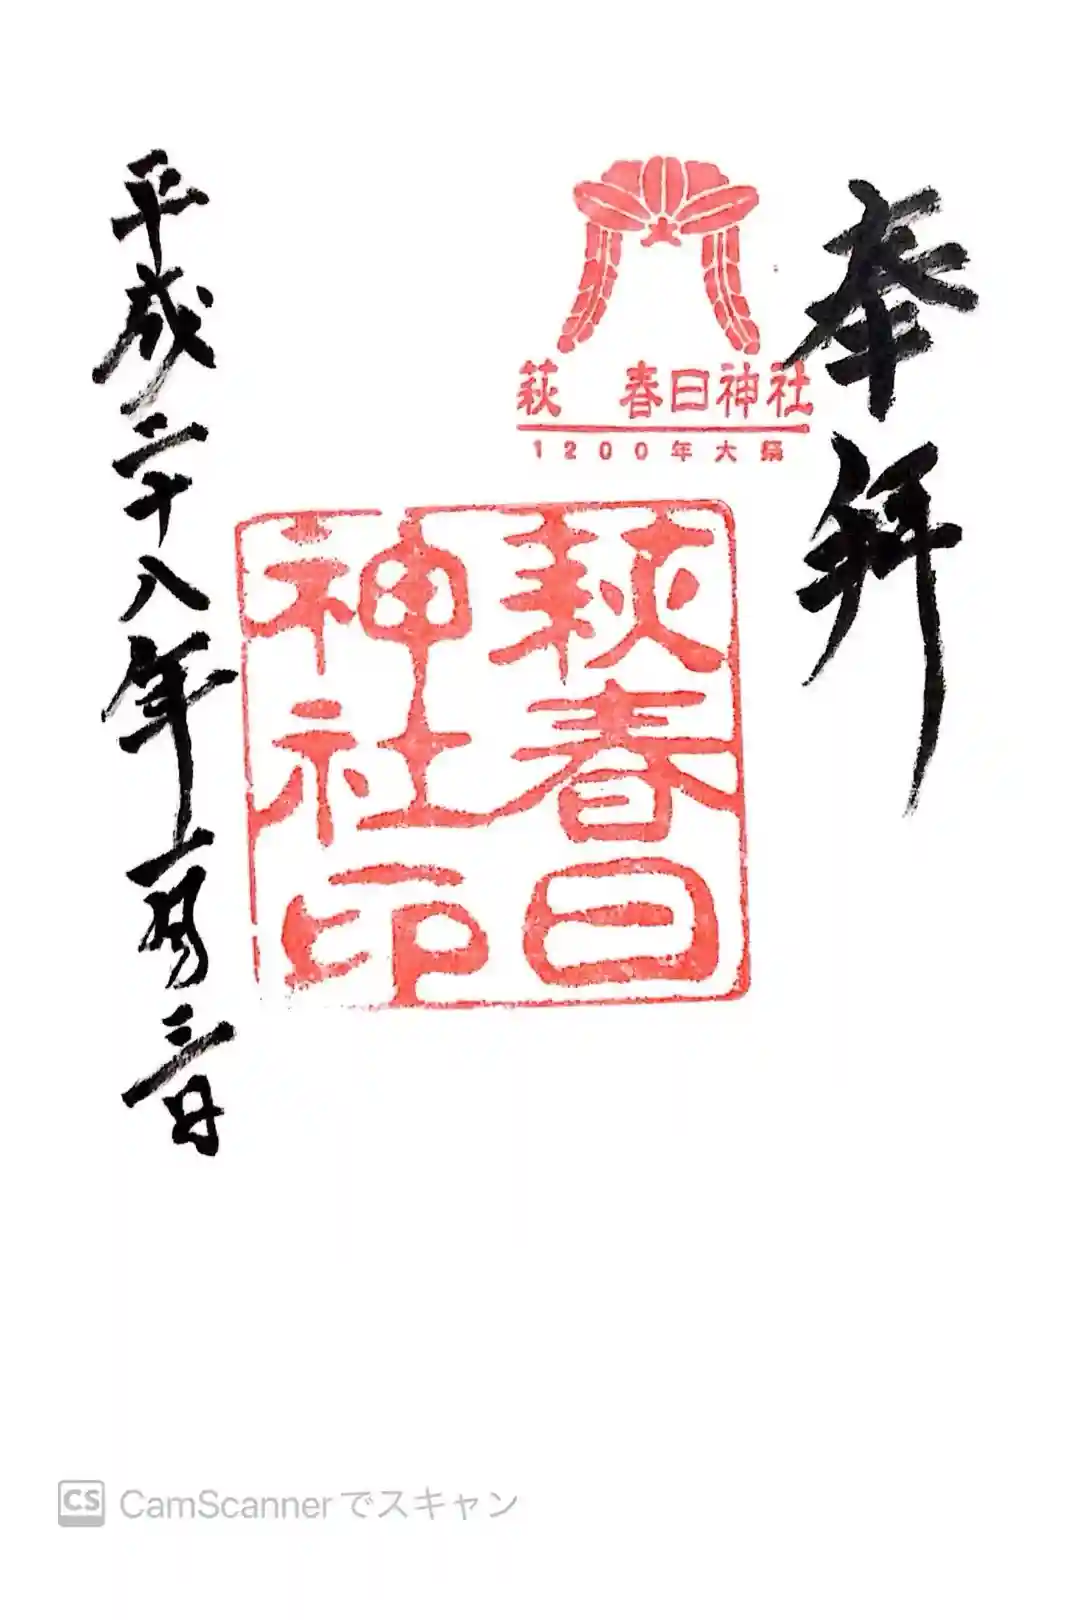 奉拝
萩 春日神社
1200年大祭
萩春日
神社印
平成二十八年一月三日
CS CamScanner でスキャン